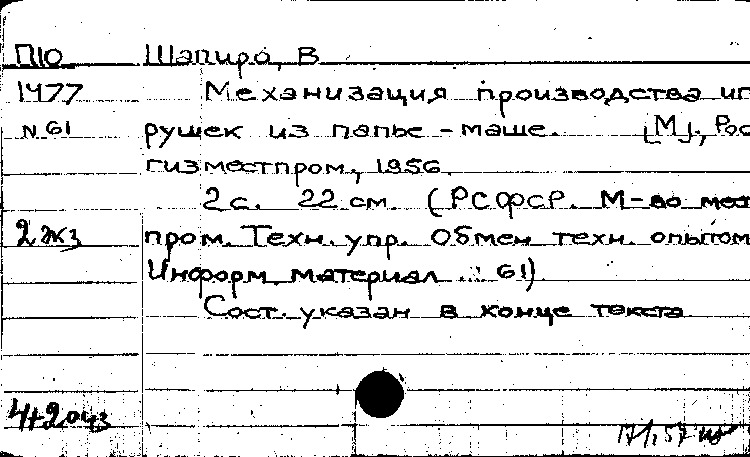 П10 Шапиро, В
1477 Механизация производства иг
N 61 рушек из папье-маше. [М], Рос
гизместпром, 1956.
2 с. 22 см. (РСФСР. М-во мест
2 жз пром. Техн. упр. Обмен техн. опытом
Информ. материал . : 61)
Сост. указан в конце текста